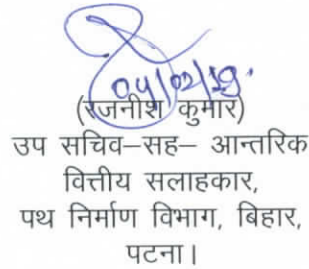 04/02/19.
(रजनीश कुमार)
उप सचिव–सह– आन्तरिक
वित्तीय सलाहकार,
पथ निर्माण विभाग, बिहार,
पटना।